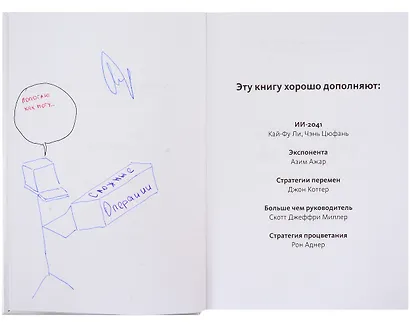 помогаю
как могу...
Сложные
Операции
Эту книгу хорошо дополняют:
ИИ-2041
Кай-Фу Ли, Чэнь Цюфань
Экспонента
Азим Ажар
Стратегии перемен
Джон Коттер
Больше чем руководитель
Скотт Джеффри Миллер
Стратегия процветания
Рон Аднер